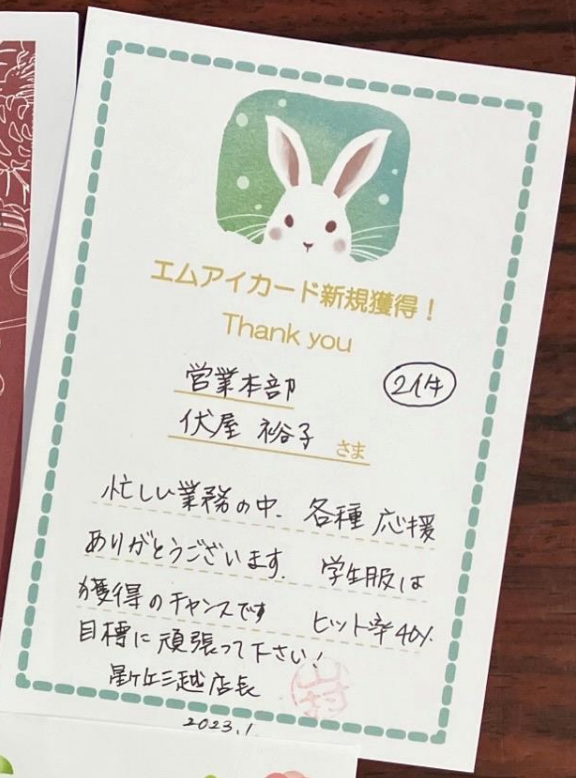 エムアイカード新規獲得！
Thank you
営業本部
2件
伏屋 裕子 さま
忙しい業務の中、各種 応援
ありがとうございます。 学生服は
獲得のチャンスです ヒット率40%
目標に頑張って下さい！
星ヶ丘三越店長
2023.1.